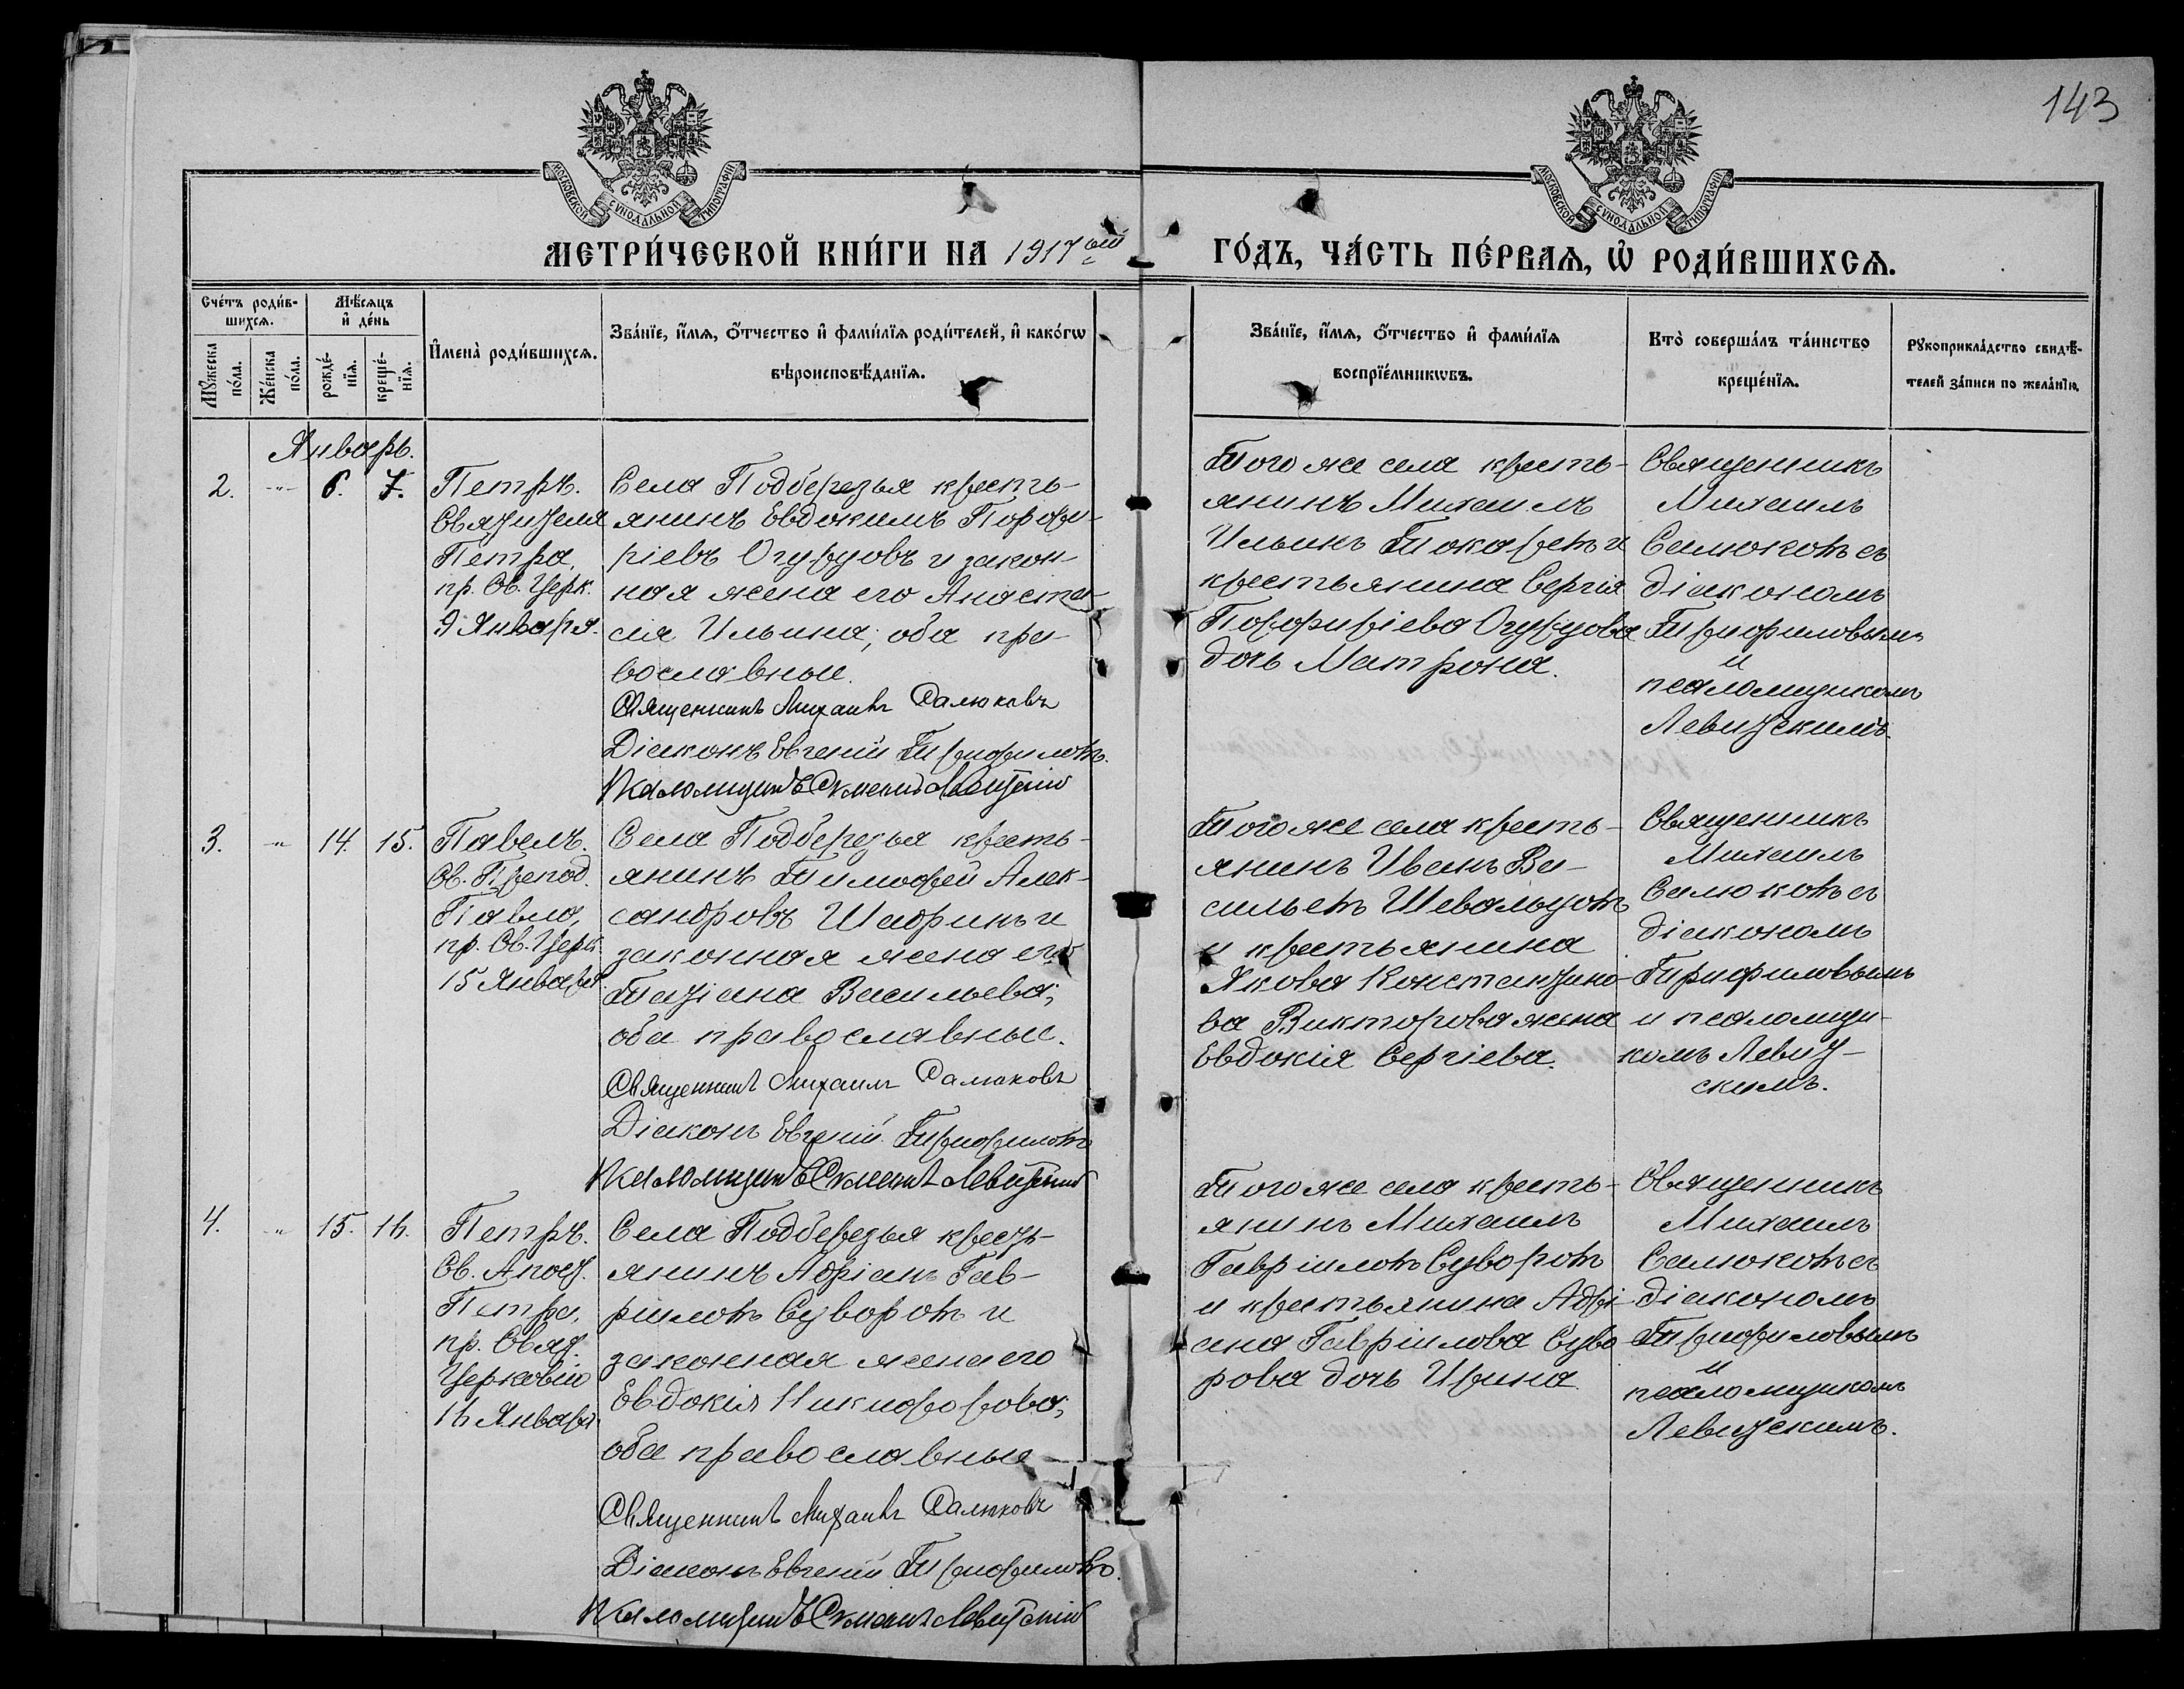 143
МОСКОВСКОЙ СѴНОДАЛЬНОЙ ТИПОГРАФІИ
МОСКОВСКОЙ СѴНОДАЛЬНОЙ ТИПОГРАФІИ
МЕТРИ́ЧЕСКОЙ КНИ́ГИ НА 1917 ый ГО́ДЪ, ЧА́СТЬ ПЕ́РВАѦ, Ѽ РОДИ́ВШИХСѦ.
Сче́тъ роди́в-
шихсѧ.
Мꙋ́жеска
по́ла.
Же́нска
по́ла.
Мѣ́сѧцъ
и҆ де́нь
рожде́-
нїѧ.
креще́-
нїѧ.
И҆мена̀ роди́вшихсѧ.
Зва́нїе, и҆́мѧ, ѻ҆́тчество и҆ фами́лїѧ роди́телей, и҆ како́гѡ
вѣроисповѣ́данїѧ.
Зва́нїе, и҆́мѧ, ѻ҆́тчество и҆ фами́лїѧ
воспрїе́мникѡвъ.
Кто̀ соверша́лъ та́инство
креще́нїѧ.
Рꙋкоприкла́дство свидѣ́-
телей за́писи по жела́нїю.
Январь.
2.
-„-
6.
7.
Петръ.
Святителя
Петра,
пр. Св. Церк.
9 Января.
Села Подберезья кресть-
янинъ Евдокимъ Порфи-
ріевъ Огурцовъ и закон-
ная жена его Анаста-
сія Ильина; оба пра-
вославные.
Священникъ Михаилъ Салюковъ
Діаконъ Евгеній Трифиловъ.
Псаломщикъ Левитскій
Того же села кресть-
янинъ Михаилъ
Ильинъ Токаревъ и
крестьянина Сергія
Порфиріева Огурцова
дочь Матрона.
Священникъ
Михаилъ
Салюковъ съ
діакономъ
Трифиловымъ
и
псаломщикомъ
Левитскимъ.
3.
-„-
14.
15.
Павелъ.
Св. Препод.
Павла,
пр. Св. Церк.
15 Января.
Села Подберезья кресть-
янинъ Тимофей Алек-
сандровъ Шадринъ и
законная жена его
Татіана Васильева;
оба православные.
Священникъ Михаилъ Салюковъ
Діаконъ Евгеній Трифиловъ
Псаломщикъ Левитскій
Того же села кресть-
янинъ Иванъ Ва-
сильевъ Шевальцовъ
и крестьянина
Якова Константино-
ва Викторова жена
Евдокія Сергіева.
Священникъ
Михаилъ
Салюковъ съ
діакономъ
Трифиловымъ
и псаломщи-
комъ Левит-
скимъ.
4.
-„-
15.
16.
Петръ.
Св. Апост.
Петра,
пр. Свят.
Церковію
16 Января
Села Подберезья кресть-
янинъ Адріанъ Гав-
ріиловъ Суворовъ и
законная жена его
Евдокія Никифорова;
оба православные
Священникъ Михаилъ Салюковъ
Діаконъ Евгеній Трифиловъ.
Псаломщикъ Левитскій
Того же села кресть-
янинъ Михаилъ
Гавріиловъ Суворовъ
и крестьянина Адрі-
ана Гавріилова Суво-
рова дочь Ирина
Священникъ
Михаилъ
Салюковъ съ
діакономъ
Трифиловымъ
и
псаломщикомъ
Левитскимъ.